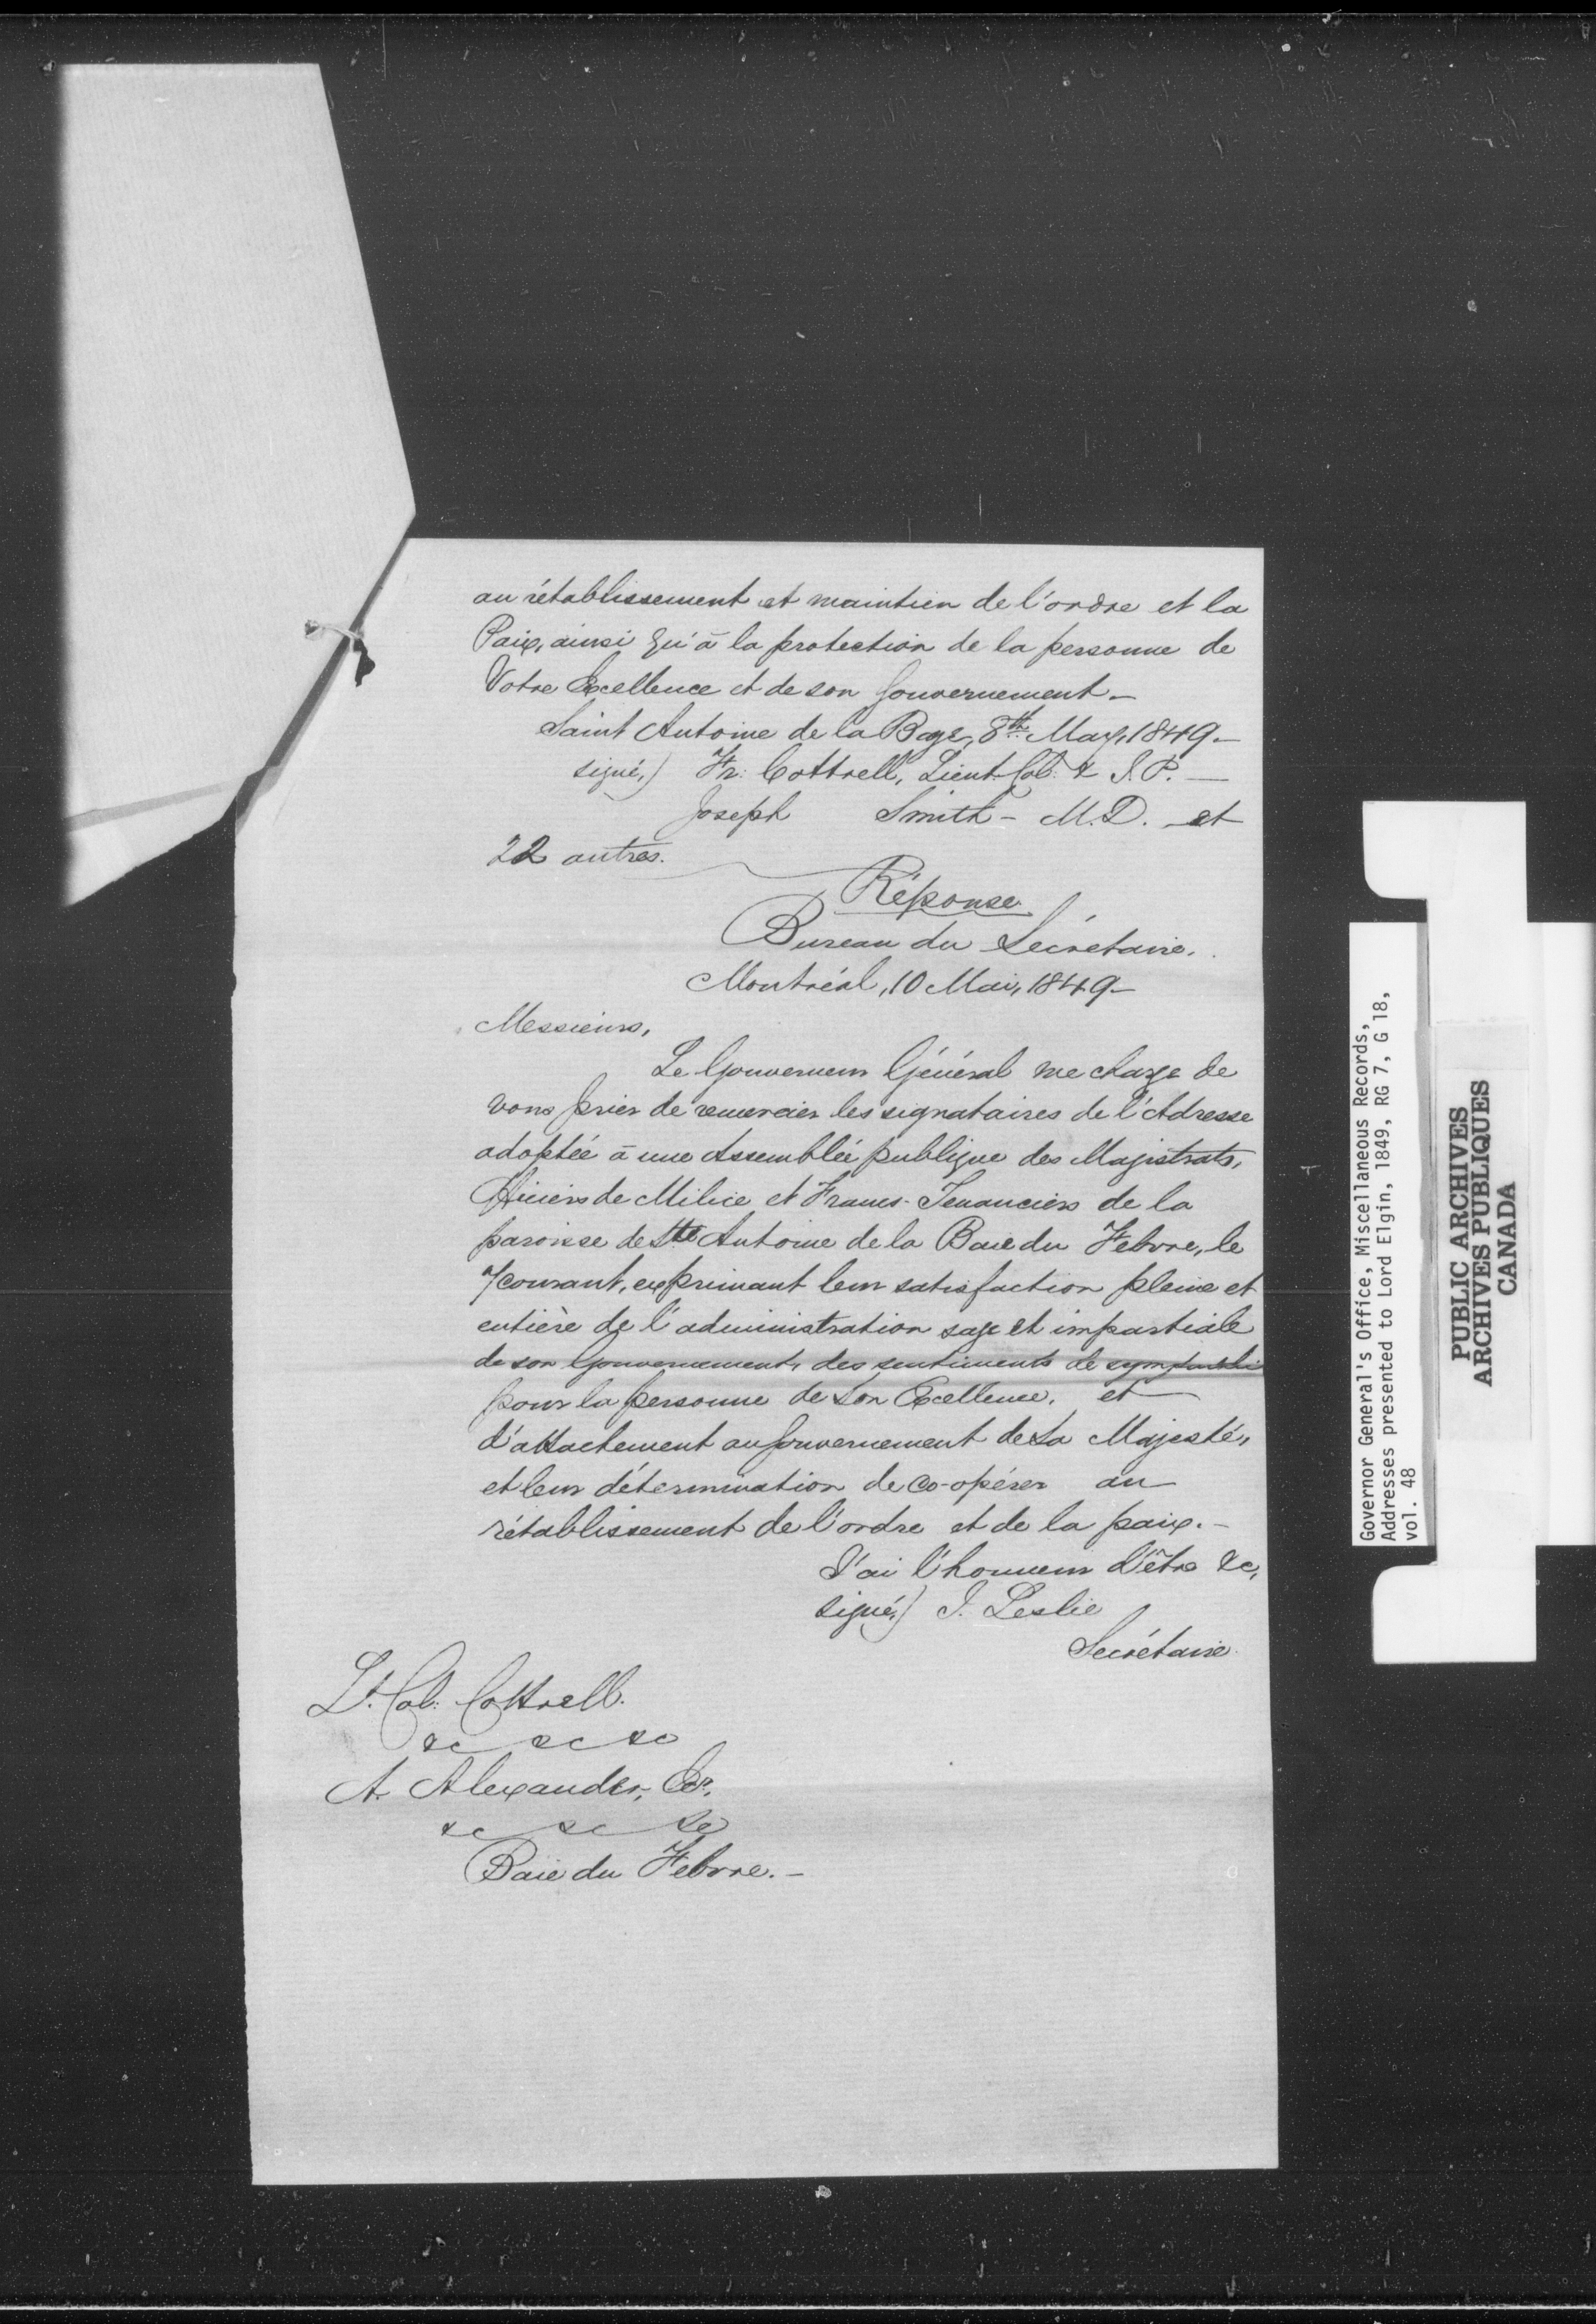 au rétablissement et maintien de l'ordre et la
Paix, ainsi qu'à la protection de la personne de
Votre Excellence et de son Gouvernement_
Saint Antoine de la Baye, 8th May, 1849_
signé,) Fr: Cottrell, Lieut. Col: & J.P. _
Joseph Smith - M.D. et
22 autres.
Réponse
Bureau du Sécretaire.
Montréal, 10 Mai, 1849_
Messieurs,
Le Gouverneur Général me charge de
vous prier de remercier les signataires de l'Adresse
adoptée à une Assemblée publique des Magistrats,
Officiers de Milice et Francs-Tenanciers de la
paroisse de Ste Antoine de la Baie du Febvre, le
7 courant, exprimant leur satisfaction pleine et
entière de l'administration sage et impartiale
de son Gouvernement, des sentiments de sympathie
pour la personne de Son Excellence, et
d'attachement au Gouvernement de Sa Majesté,
et leur détermination de co-opérer au
rétablissement de l'ordre et de la paix._
J'ai l'honneur d'être &c,
signé,) J. Leslie
Secrétaire.
Lt. Col: Cottrell.
&c &c &c
A. Alexander, Er.
&c &c &c
Baie du Febvre._
Governor General's Office, Miscellaneous Records,
Addresses presented to Lord Elgin, 1849, RG 7, G 18,
vol. 48
PUBLIC ARCHIVES
ARCHIVES PUBLIQUES
CANADA